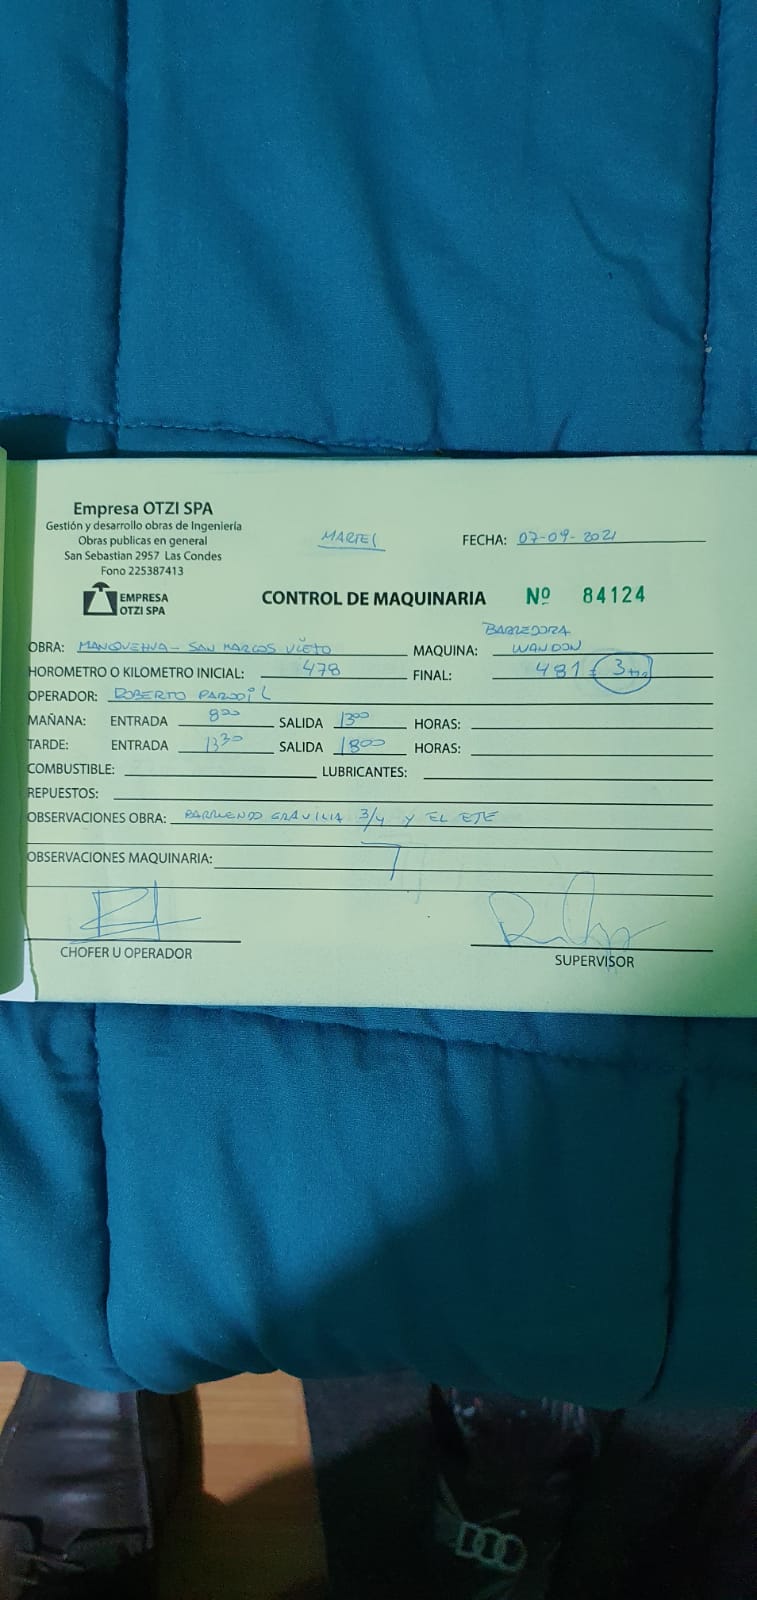 Empresa OTZI SPA
Gestión y desarrollo obras de Ingeniería
Obras publicas en general
San Sebastian 2957 Las Condes
Fono 225387413
MARTES
FECHA: 07-09-2021
EMPRESA
OTZI SPA
CONTROL DE MAQUINARIA Nº 84124
BARREDORA
OBRA: MANQUEHUA - SAN MARCOS VIEJO MAQUINA: WANDON
HOROMETRO O KILOMETRO INICIAL: 478 FINAL: 481 = 3
OPERADOR: ROBERTO PARODI L
MAÑANA: ENTRADA 800 SALIDA 1300 HORAS:
TARDE: ENTRADA 1330 SALIDA 1800 HORAS:
COMBUSTIBLE: LUBRICANTES:
REPUESTOS:
OBSERVACIONES OBRA: BARRIENDO GRAVILIA 3/4 Y EL EJE
OBSERVACIONES MAQUINARIA:
CHOFER U OPERADOR
SUPERVISOR